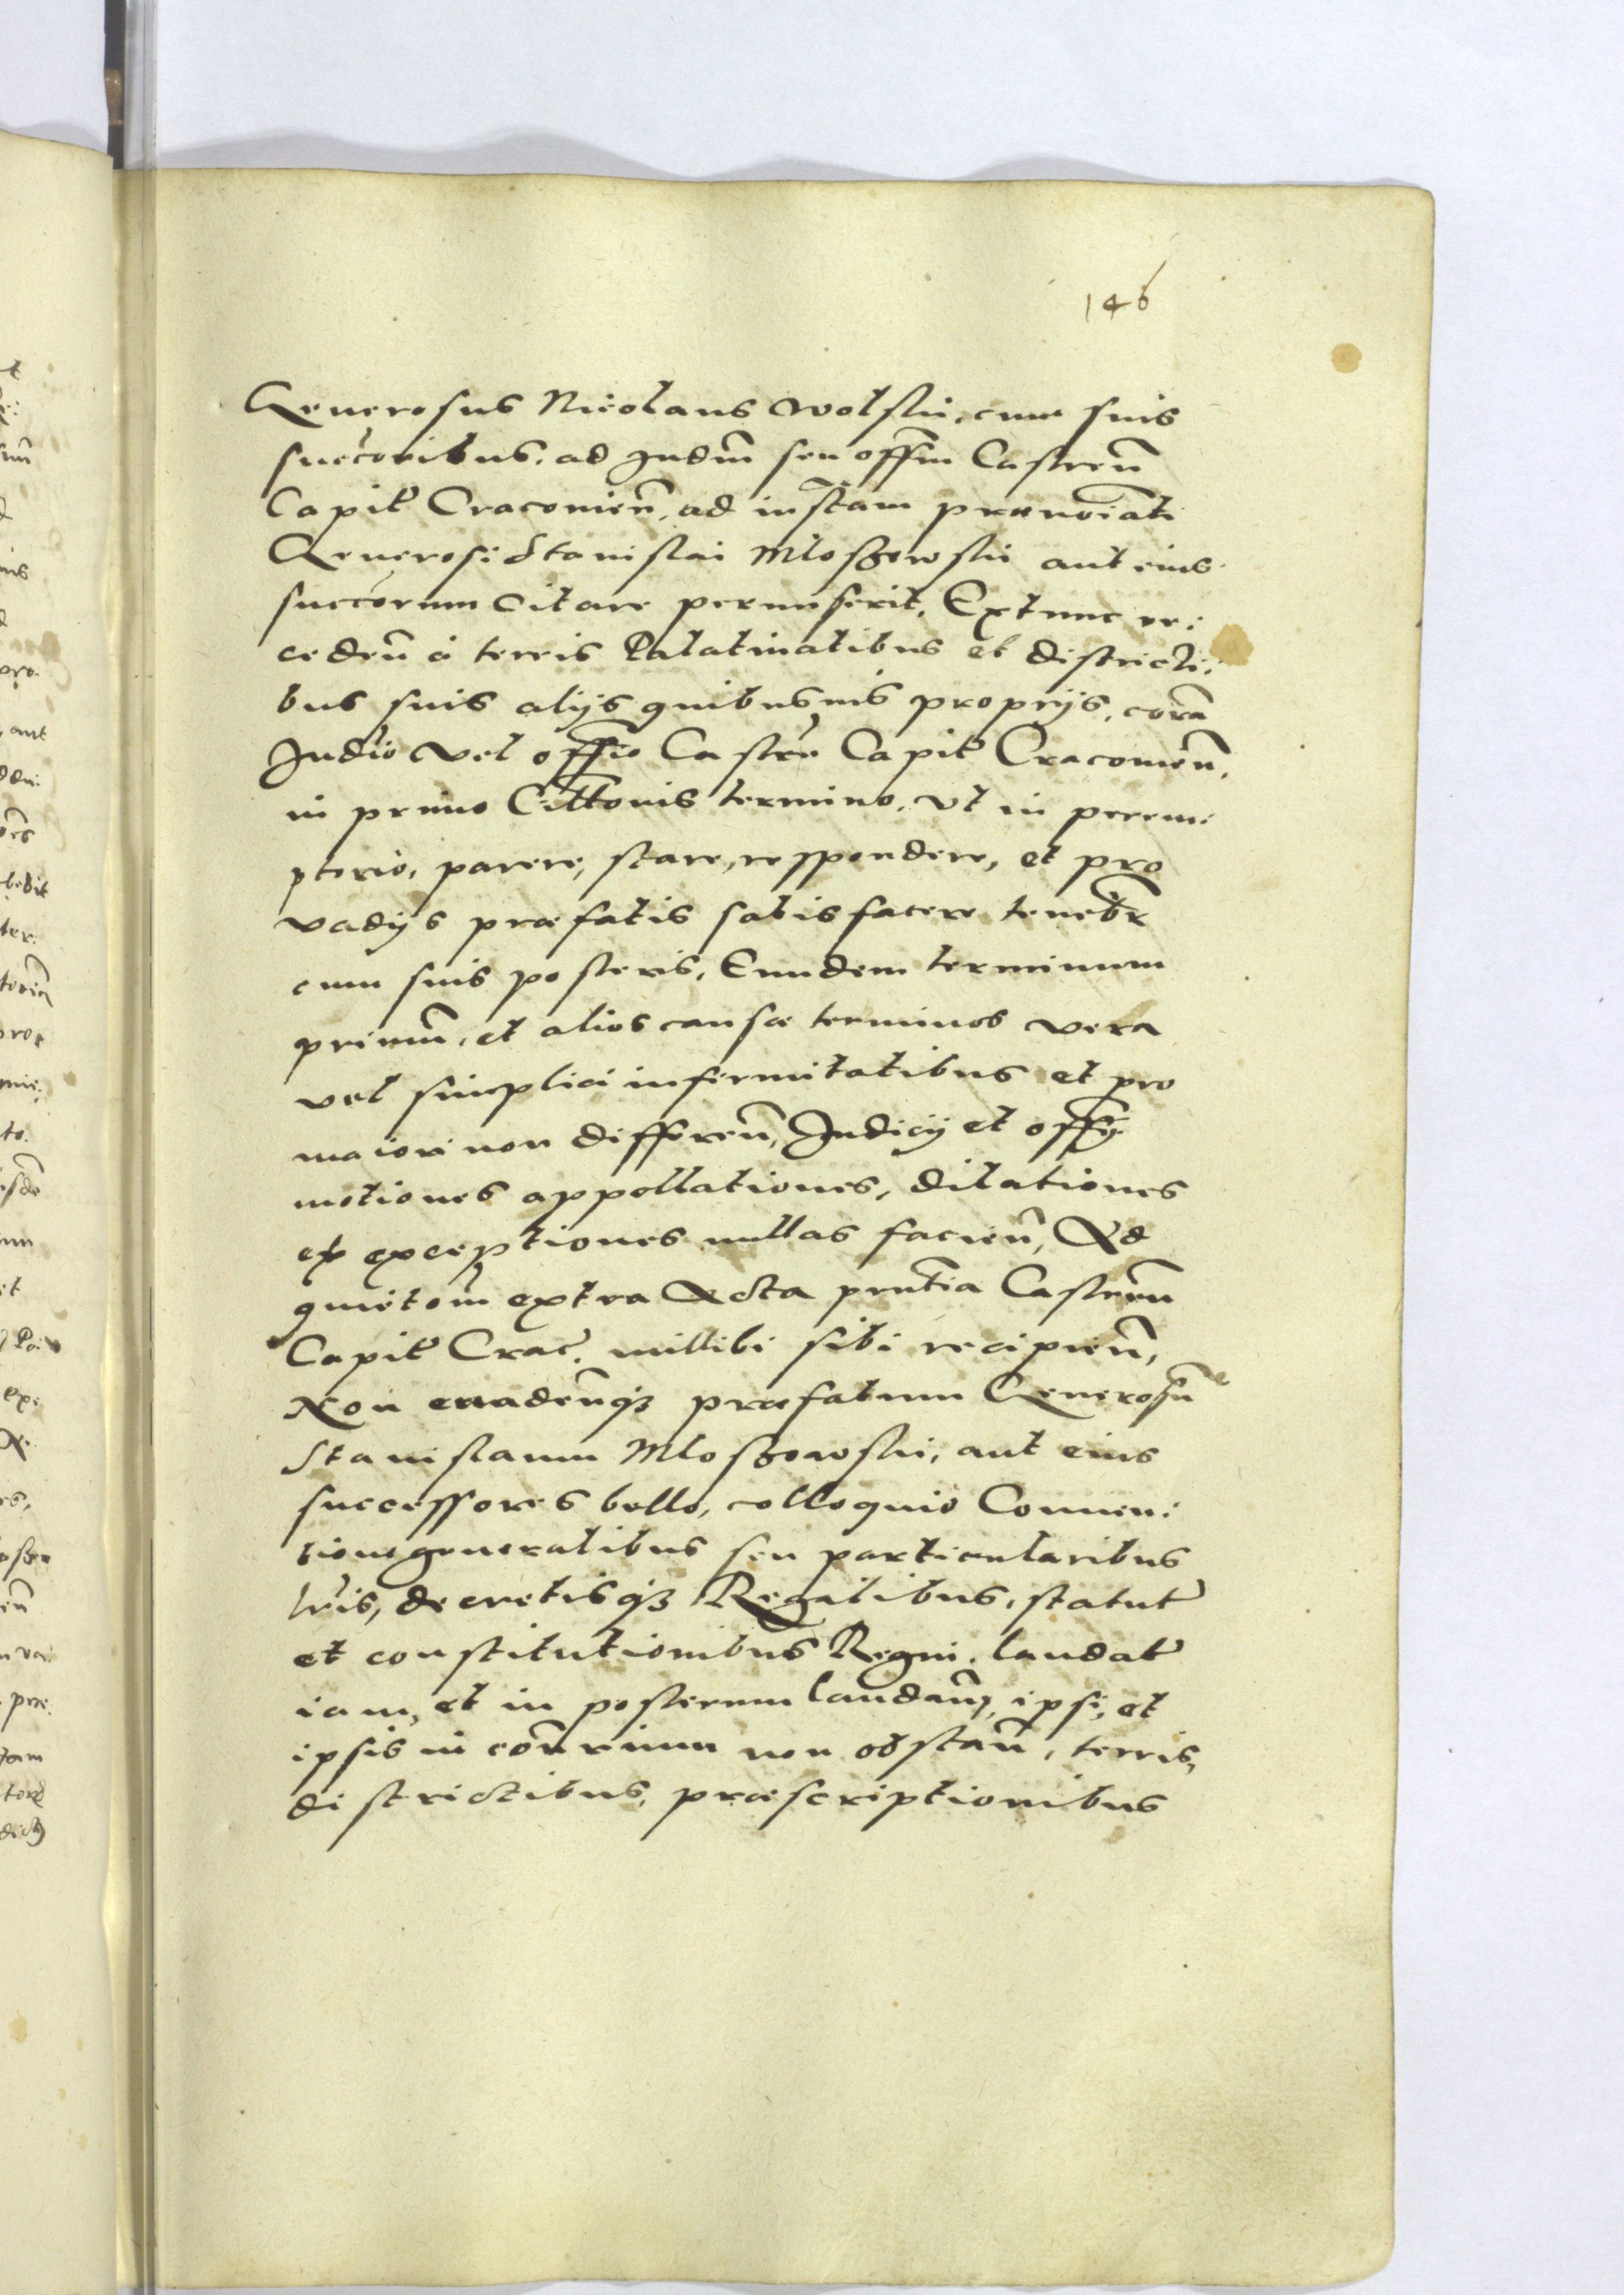 146
Generosus Nicolaus Wolski, cum suis
succoribus, ad Judm̄ seu offm̄ Castren̄
Capit Cracovien̄, ad instām prænoīati
Generosi Stanislai Mloszowski aut eius
succorum citare permiserit, Extunc re:
ceden̄ à terris Palatinatibus et districti:
bus suis alijs quibusuis proprijs, corā
Judio vel offio Castrē Capit Cracouien̄,
in primo Cittonis termino, vt in perem:
ptorio, parere, stare, respondere, et pro
vadijs præfatis satisfacere tenebr̄
cum suis posteris, Eundem terminum
primū, et alios causæ terminos vera
vel simplici infirmitatibus et pro
maiori non differen̄, Judicij et offij
motiones appellationes, dilationes
et exceptiones nullas facien̄, Ad
quietom̄ extra Acta prntia Castren̄
Capit Crac, nullibi sibi recipien̄,
Non euaden̄q3 præfatum Generosū
Stanislaum Mloszowski, aut eius
successores bello, colloquio Conuen:
tione generalibus seu particularibus
lris, decretisq3 Regalibus, statut
et constitutionibus Regni, laudat
iam, et in posterum laudan̄, ipsi, et
ipsis in cōnrium non obstan̄, terris,
districtibus, præscriptionibus